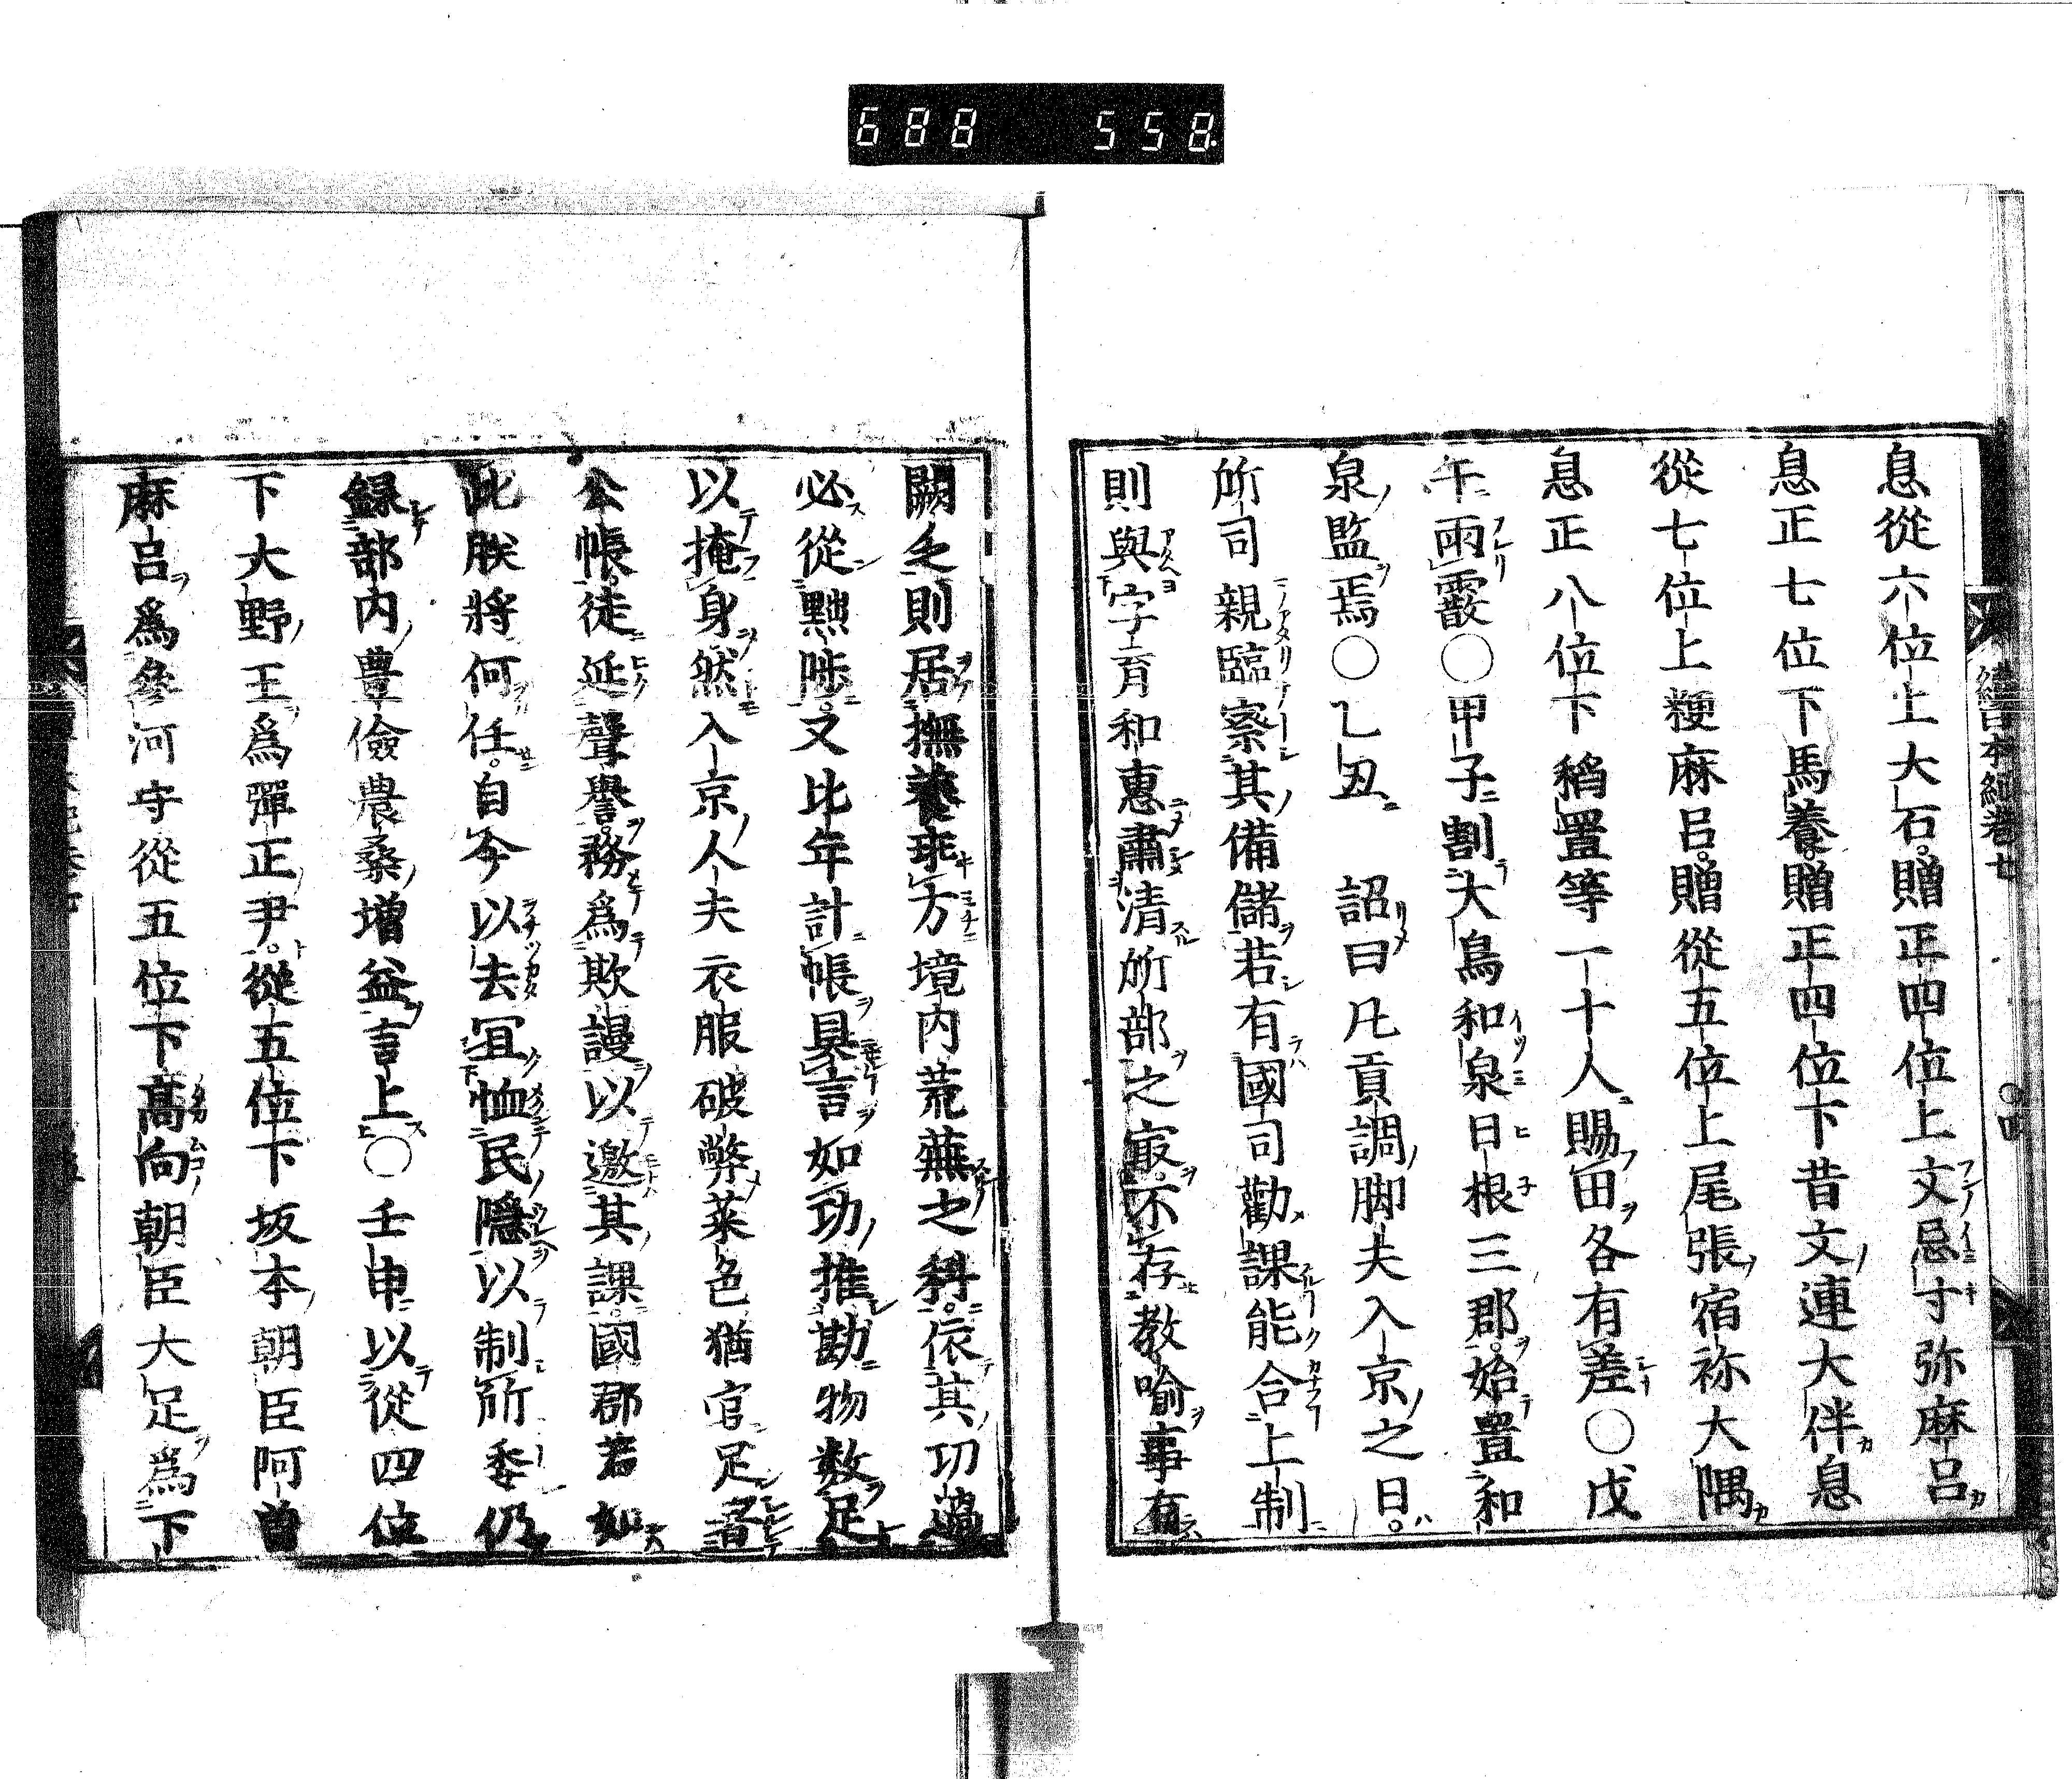 688 558
續日本紀卷七 ○四
息從六位上大石。贈正四位上文忌寸弥麻呂
息正七位下馬養。贈正四位下昔文連大伴息
從七位上粳麻呂。贈從五位上尾張宿祢大隅
息正八位下稻置等一十人賜田各有差○戊
午雨霰○甲子割大鳥和泉日根三郡。始置和
泉監焉○乙丑 詔曰凡貢調脚夫入京之日。
所司親臨察其備儲若有國司勸課能合上制
則與字育和惠肅清所部之最。不存教喻事有
闕乏則居撫養乖方境内荒蕪之科。依其功過
必從黜陟。又比年計帳具言如功推勘物数足
以掩身然入京人夫衣服破弊菜色猶官足著
公帳。徒延聲譽。務爲欺謾以邀其課。國郡若如
此朕將何任。自今以去宜恤民隱以制所委仍
録部内豊儉農桑増益言上○壬申以從四位
下大野王爲彈正尹。從五位下坂本朝臣阿曽
麻呂爲參河守從五位下高向朝臣大足爲下